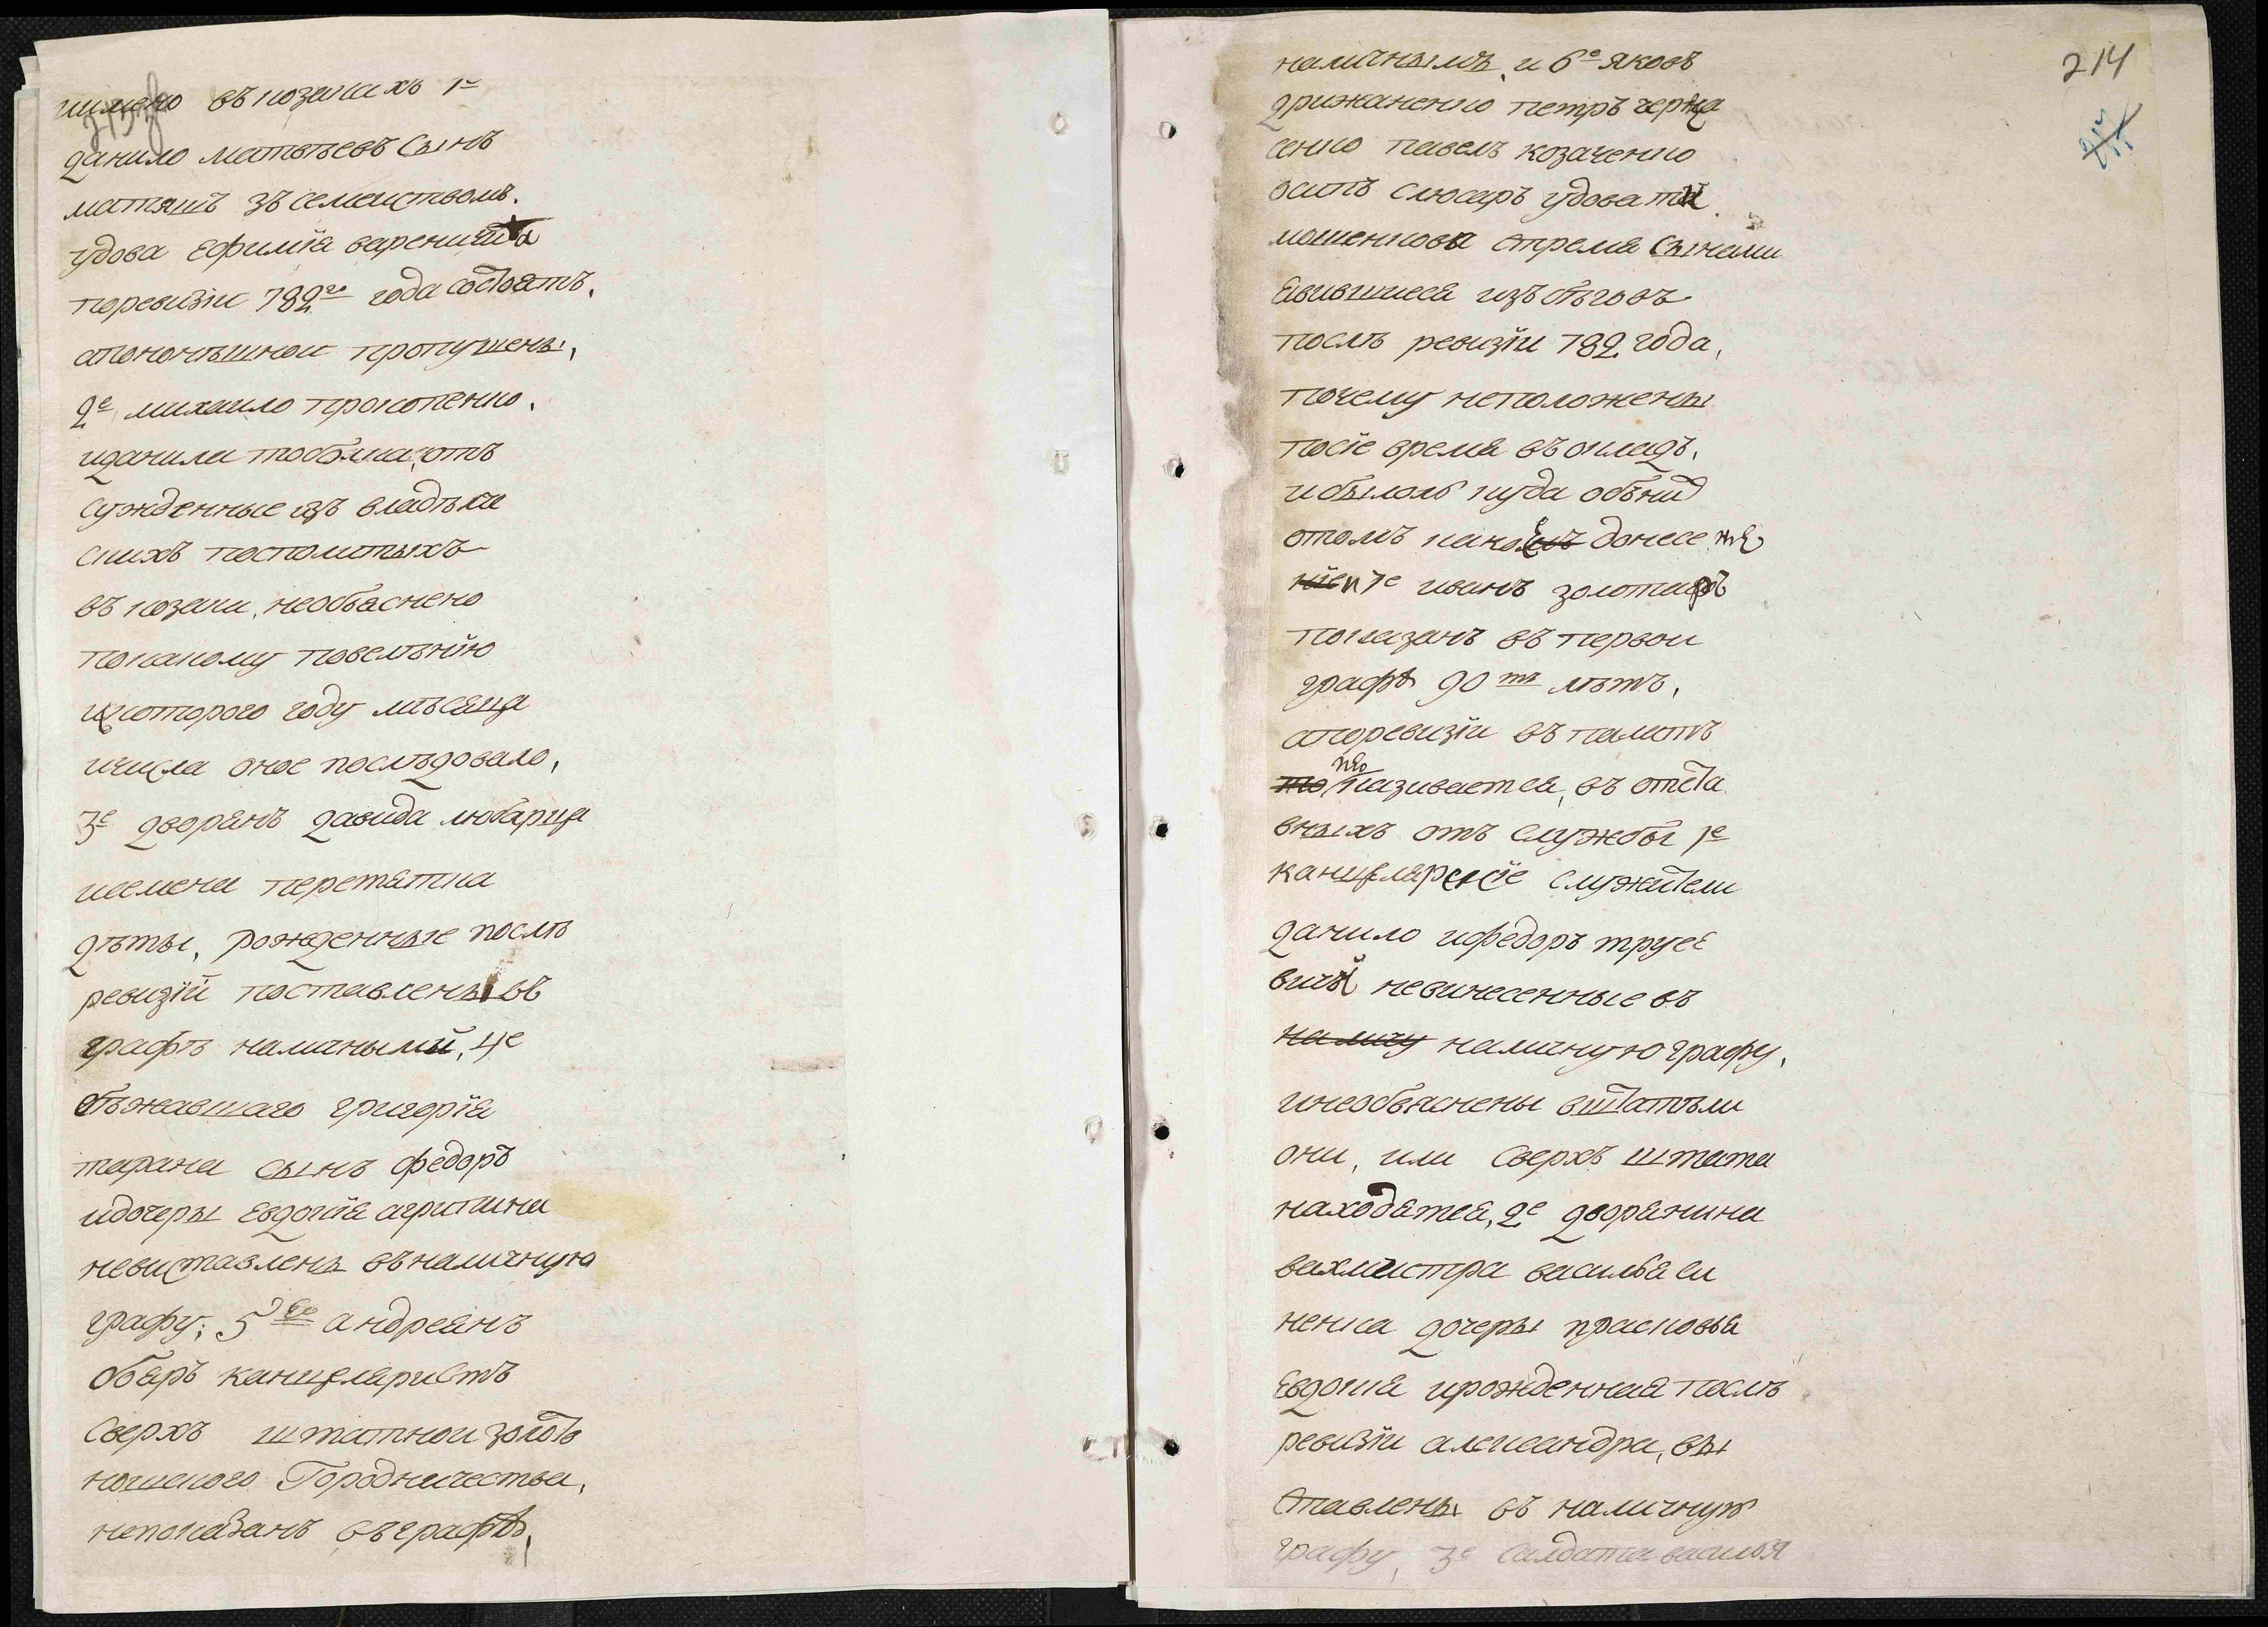 имено въ козакахъ 1е
данило матвѣевъ сынъ
матяшъ зъ семействомъ.
удова ефимія варенич
поревизіи 782го года состоятъ,
апононѣшной пропущены,
2е михаило прокопенко,
иданила отъ
сужденные изъ владѣ
скихъ посполитыхъ
въ козаки, необъяснено
покакому повелѣнію
икоторого году мѣсяца
ичисла оное послѣдовало,
3е дворянъ давида любарца
исемена перетятка
дѣты, рожденные послѣ
ревизій поставлены въ
графѣ наличными, 4е
бѣжавшаго григорія
тарана сынъ федоръ
идочеры евдокія агрипина
невиставлены въ наличную
графу; 5е андреянъ
обаръ канцеляристъ
сверхъ штатной золото
ношского Городничества,
непоказанъ въ графѣ,
214
наличнымъ, и 6е яковъ
дрижаненко петръ черка
сенко павелъ козаченко
осипъ слюсаръ удова
мошенкова стрема сынами
явившиеся изъ бѣговъ
послѣ ревизіи 782 года,
почему неположены
посіе время въ окладъ,
ибылоль куда объ нихъ
отомъ какое донесе
ніе 7е иванъ золотаръ
показанъ въ первой
графѣ 90ти лѣтъ,
апоревизіи въ
казивается, въ отста
вныхъ отъ службы 1е
канцелярскіе служители
данило ифедоръ трусе
вичы невинесенные въ
наличу наличную графу,
инеобъяснены вштатѣли
они, или сверхъ штата
находятся, 2е дворянина
вахмистра василья си
ненка дочеры прасковья
евдокия ирожденная послѣ
ревизіи александра, вы
ставлены въ наличную
графу, 3е салдата василія